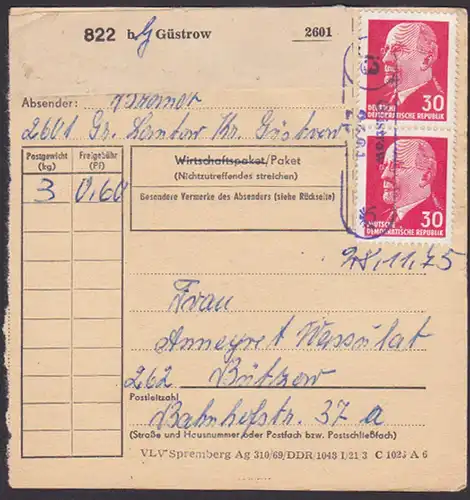 822 b/ Güstrow 2601
Absender:
2601 Gr. Kr. Güstrow
Postgewicht (kg)
Freigebühr (Pf)
3 0,60
Wirtschaftspaket/Paket
(Nichtzutreffendes streichen)
Besondere Vermerke des Absenders (siehe Rückseite)
30
DEUTSCHE
DEMOKRATISCHE REPUBLIK
30
DEUTSCHE
DEMOKRATISCHE REPUBLIK
28.11.75
Frau
Annegret
262 Bützow
Postleitzahl
Bahnhofstr. 37 a
(Straße und Hausnummer oder Postfach bzw. Postschließfach)
VLV Spremberg Ag 310/69/DDR/1048 I/21 3 C 1023 A 6